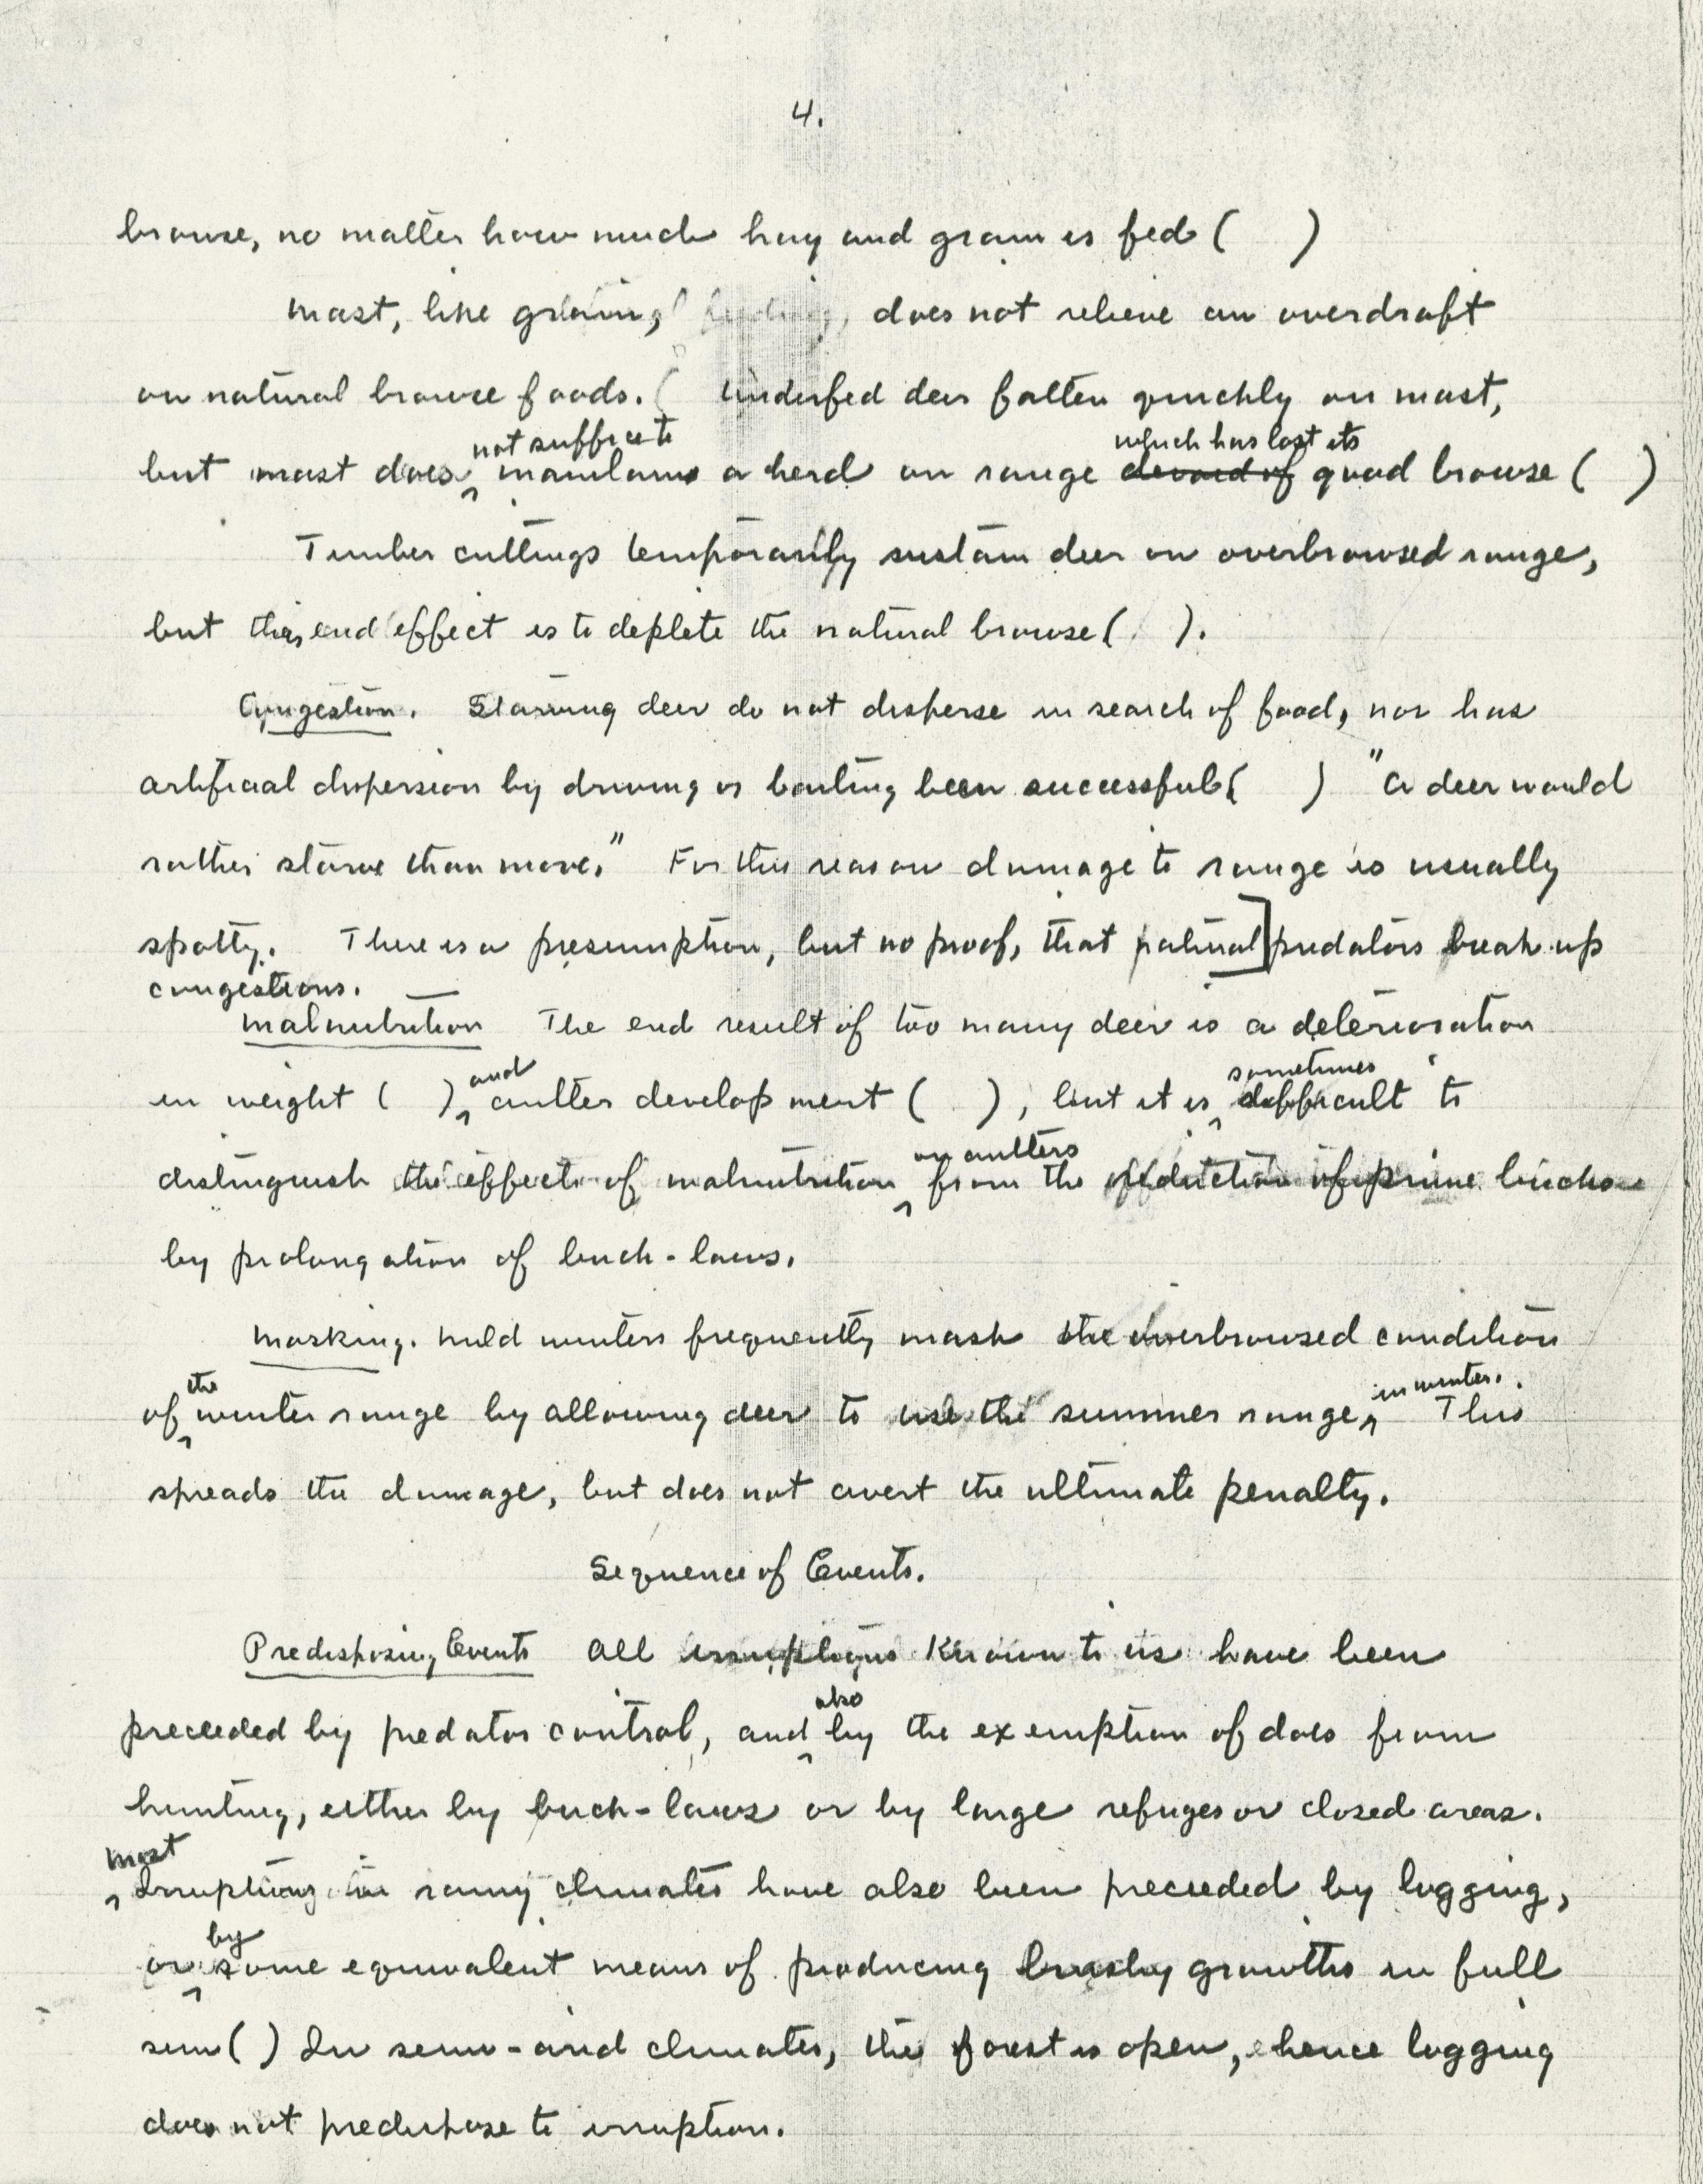 4.
browse, no matter how much hay and grain is fed ( )
Mast, like grain, does not relieve an overdraft
on natural browse foods. ( Underfed deer fatten quickly on mast,
not suffice to which has lost its
but mast does ‸ maintain a herd on range devoid of good browse ( )
Timber cuttings temporarily sustain deer on overbrowsed range,
but the end effect is to deplete the natural browse ( ).
Congestion. Starving deer do not disperse in search of food, nor has
artificial dispersion by driving or baiting been successful ( ) "A deer would
rather starve than move." For this reason damage to range is usually
spotty. There is a presumption, but no proof, that natural] predators break up
congestions.
Malnutrition The end result of too many deer is a deterioration
and sometimes
in weight ( ) ‸ antler development ( ), but it is ‸ difficult to
on antlers
distinguish the effects of malnutrition ‸ from the reduction of prime bucks
by prolongation of buck-laws.
Masking. Mild winters frequently mask the overbrowsed condition
the in winter.
of ‸ winter range by allowing deer to use the summer range ‸ This
spreads the damage, but does not avert the ultimate penalty.
Sequence of Events.
Predisposing Events All irruptions known to us have been
also
preceded by predator control, and ‸ by the exemption of does from
hunting, either by buck-laws or by large refuges or closed areas.
Most
‸ Irruptions in rainy climates have also been preceded by logging,
by
or ‸ some equivalent means of producing brushy growths in full
sun ( ) In semi-arid climates, the forest is open, hence logging
does not predispose to irruption.